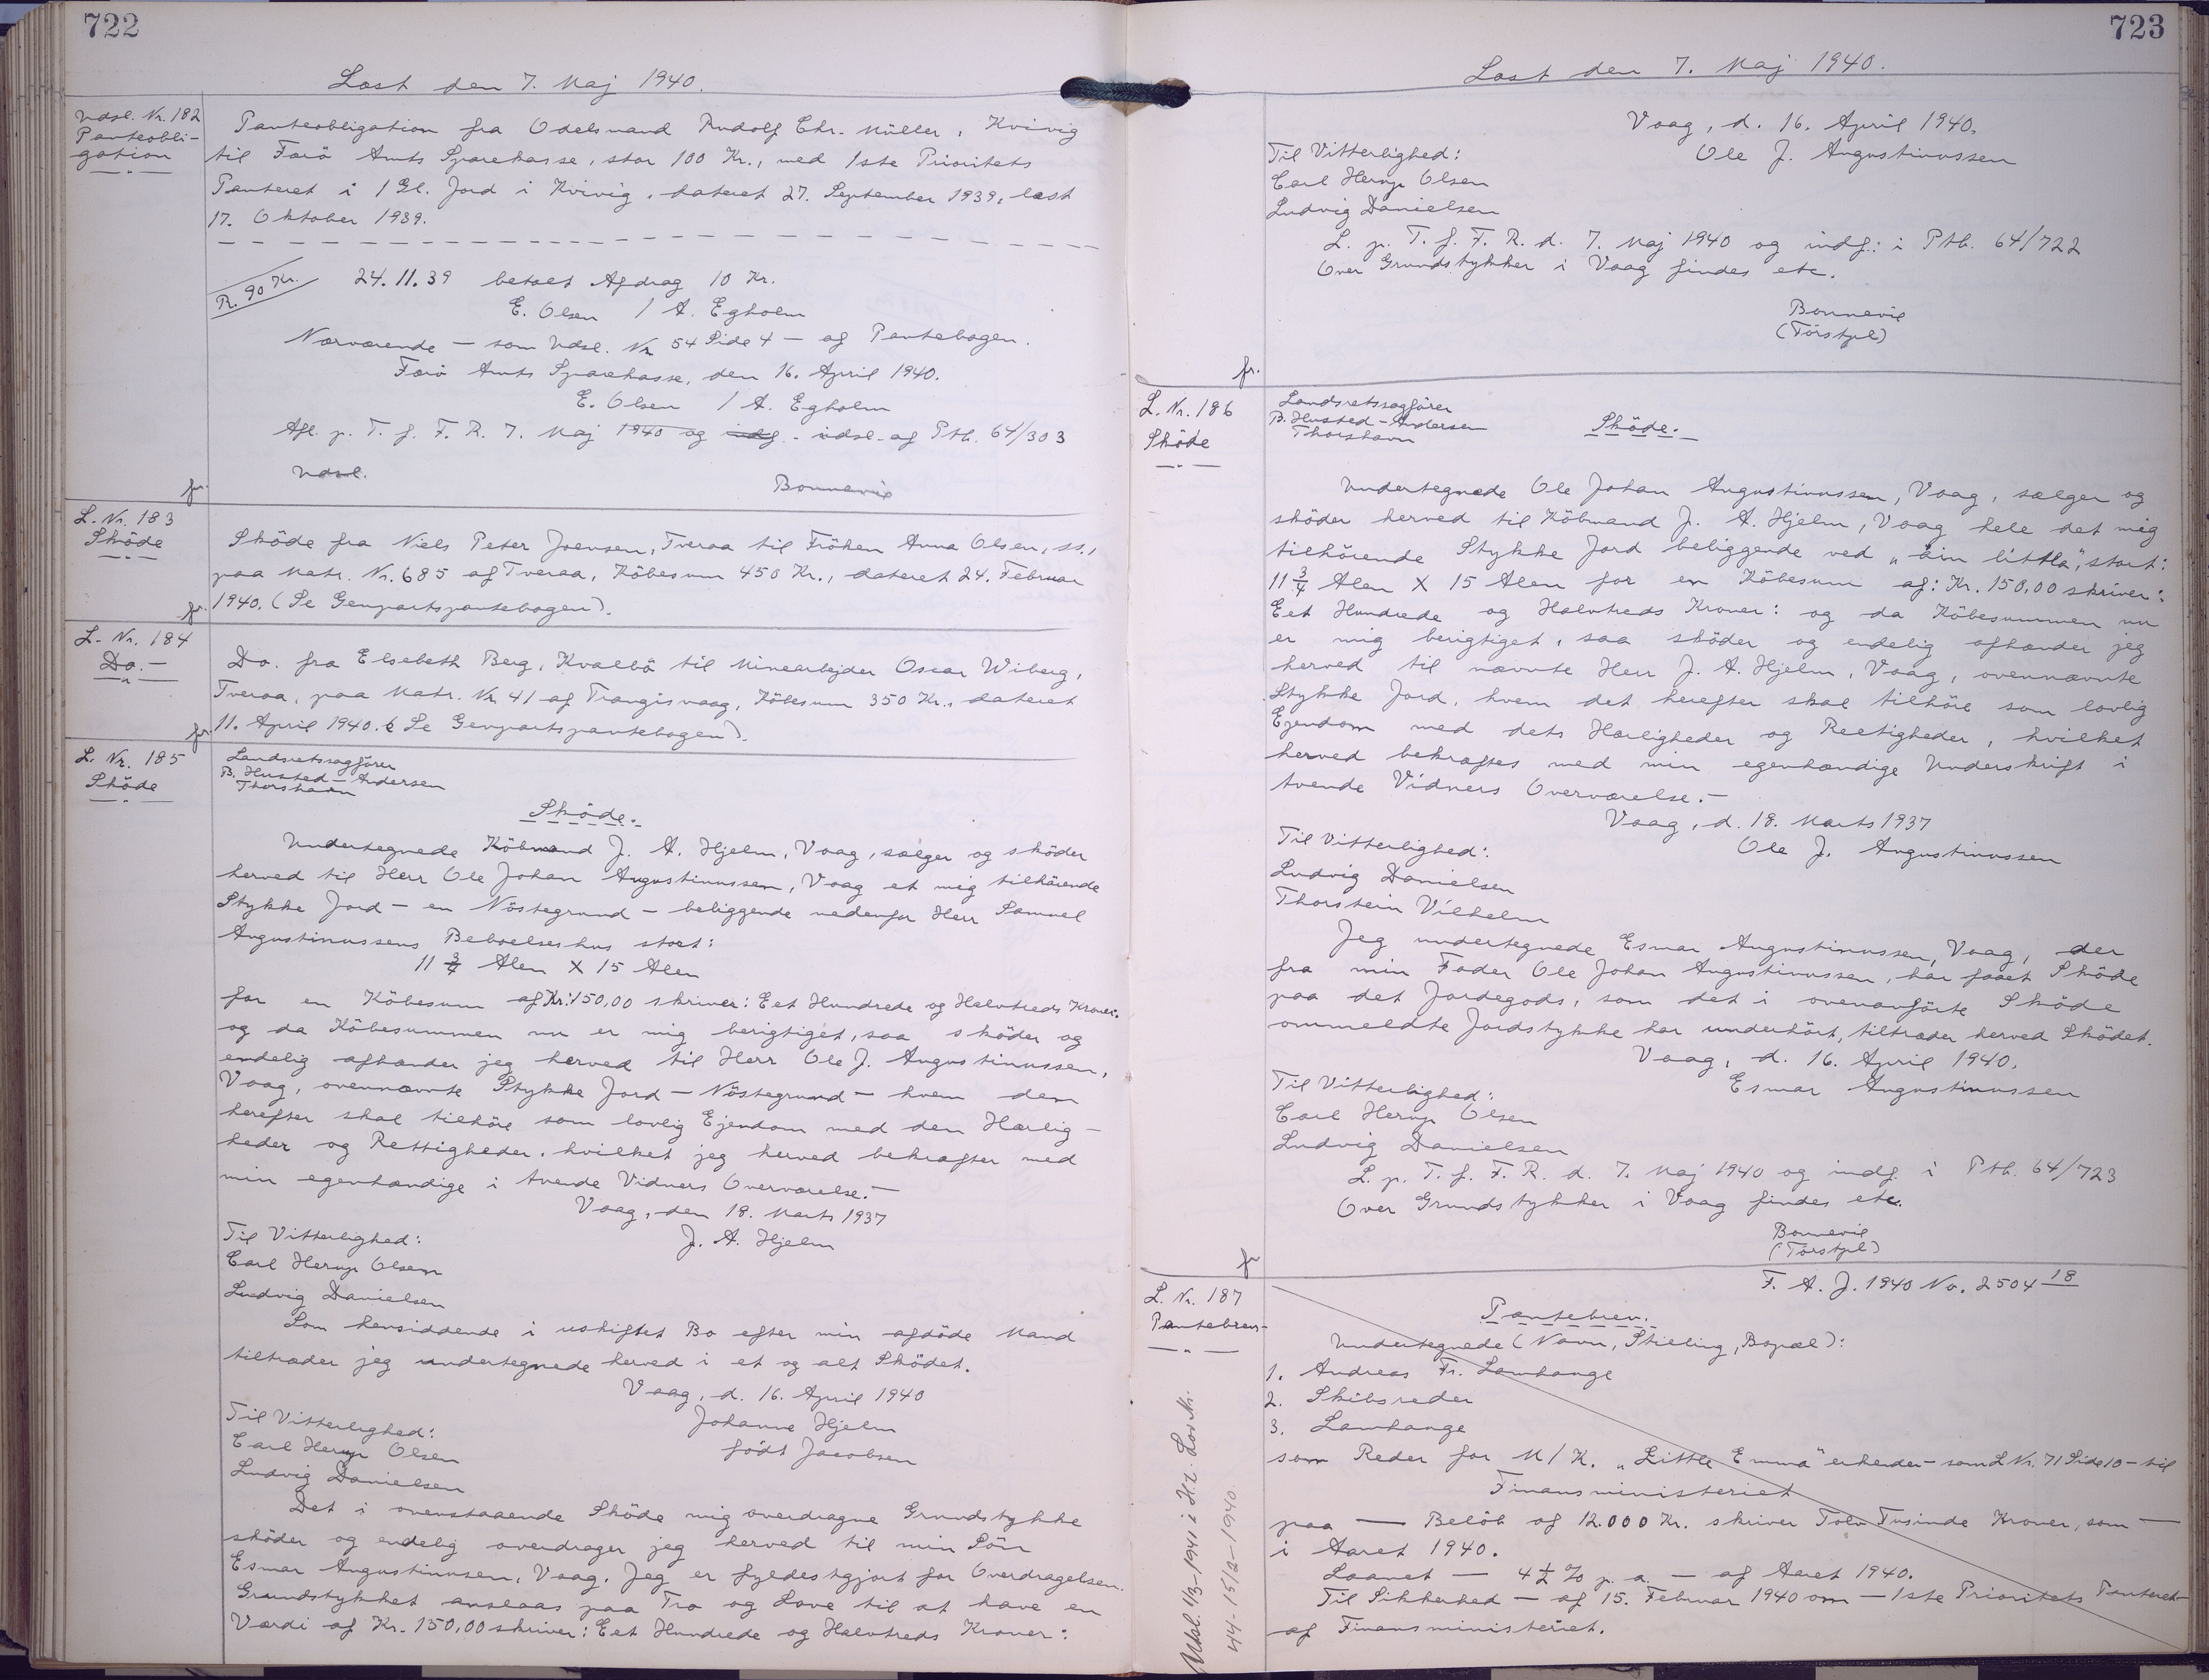 722
Læst den 7. Maj 1940.
Udsl. Nr. 182
Panteobli-
gation
Panteobligation fra Odelsmand Rudolf Chr. Müller, Kvivig
til Færö Amts Sparekasse, stor 100 Kr., med 1ste Prioritets
Panteret i 1 Gl. Jord i Kvivig, dateret 27. September 1939, læst
17. Oktober 1939.
R. 90 Kr.
24.11.39 betalt Afdrag 10 Kr.
E. Olsen / A. Egholm
Nærværende — som Udsl. Nr 54 Side 4 — af Pantebogen.
Færö Amts Sparekasse, den 16. April 1940.
E. Olsen / A. Egholm
Afl. p. T. f. F. R. 7. Maj 1940 og indf. - udsl. af Ptb. 64/303
Udsl.
Bonnevie
fr.
L. Nr. 183
Sköde
Sköde fra Niels Peter Joensen, Tveraa til Fröken Anna Olsen, ss.,
paa Matr. Nr. 685 af Tveraa, Köbesum 450 Kr., dateret 24. Februar
1940. (Se Genpartspantebogen).
fr.
L. Nr. 184
Do.-
Do. fra Elsebeth Berg, Kvalbö til Minearbejder Oscar Wiberg,
Tveraa, paa Matr. Nr 41 af Trangisvaag, Köbesum 350 Kr., dateret
11. April 1940. ( Se Genpartspantebogen).
fr.
L. Nr. 185
Sköde
Landsretssagförer
B. Husted-Andersen
Thorshavn
Sköde.
Undertegnede Köbmand J. A. Hjelm, Vaag, sælger og sköder
herved til Herr Ole Johan Augustinussen, Vaag et mig tilhörende
Stykke Jord — en Nöstegrund — beliggende nedenfor Herr Samuel
Augustinussens Beboelseshus stort:
11 3/4 Alen X 15 Alen
for en Köbesum af Kr: 150,00 skriver: Eet Hundrede og Halvtreds Kroner.
og da Köbesummen nu er mig berigtiget, saa sköder og
endelig afhænder jeg herved til Herr Ole J. Augustinussen,
Vaag, ovennævnte Stykke Jord — Nöstegrund — hvem den
herefter skal tilhöre som lovlig Ejendom med den Herlig-
heder og Rettigheder, hvilket jeg herved bekræfter med
min egenhændige i tvende Vidners Overværelse.—
Vaag, den 18. Marts 1937
J. A. Hjelm
Til Vitterlighed:
Carl Herup Olsen
Ludvig Danielsen
Som hensiddende i uskiftet Bo efter min afdöde Mand
tiltræder jeg undertegnede herved i et og alt Sködet.
Vaag, d. 16. April 1940
Johanne Hjelm
födt Jacobsen
Til Vitterlighed:
Carl Herup Olsen
Ludvig Danielsen
Det i ovenstaaende Sköde mig overdragne Grundstykke
sköder og endelig overdrager jeg herved til min Sön
Esmar Augustinussen, Vaag. Jeg er fyldestgjort for Overdragelsen.
Grundstykket anslaas paa Tro og Love til at have en
Værdi af Kr. 150,00 skriver: Eet Hundrede og Halvtreds Kroner:
723
Læst den 7. Maj 1940.
Vaag, d. 16. April 1940.
Ole J. Augustinussen
Til Vitterlighed:
Carl Herup Olsen
Ludvig Danielsen
L. p. T. f. F. R. d. 7. Maj 1940 og indf: i Ptb. 64/722
Over Grundstykker i Vaag findes etc.
Bonnevie
(Tórstpl)
fr.
L. Nr. 186
Sköde
Landsretssagförer
B. Husted-Andersen
Thorshavn
Sköde.
Undertegnede Ole Johan Augustinussen, Vaag, sælger og
sköder herved til Köbmand J. A. Hjelm, Vaag hele det mig
tilhörende Stykke Jord beliggende ved „áin littla“, stort:
11 3/4 Alen X 15 Alen for en Köbesum af: Kr. 150,00 skriver:
Eet Hundrede og Halvtreds Kroner: og da Köbesummen nu
er mig berigtiget, saa sköder og endelig afhænder jeg
herved til nævnte Herr J. A. Hjelm, Vaag, ovennævnte
Stykke Jord, hvem det herefter skal tilhöre som lovlig
Ejendom med dets Herligheder og Rettigheder, hvilket
herved bekræftes med min egenhændige Underskrift i
tvende Vidners Overværelse.—
Vaag, d. 18. Marts 1937
Ole J. Augustinussen
Til Vitterlighed:
Ludvig Danielsen
Thorstein Vilhelm
Jeg undertegnede Esmar Augustinussen, Vaag, der
fra min Fader Ole Johan Augustinussen, har faaet Sköde
paa det Jordegods, som det i ovenanförte Sköde
ommeldte Jordstykke har underhört, tiltræder herved Sködet.
Vaag, d. 16. April 1940.
Esmar Augustinussen
Til Vitterlighed:
Carl Herup Olsen
Ludvig Danielsen
L. p. T. f. F. R. d. 7. Maj 1940 og indf. i Ptb. 64/723
Over Grundstykker i Vaag findes etc.
Bonnevie
(Tórstpl)
fr
L. Nr. 187
Pantebrev-
F. A. J. 1940 No. 2504 18
Pantebrev.
Undertegnede (Navn, Stilling, Bopæl):
1. Andreas Fr. Lamhauge
2. Skibsreder
3. Lamhauge
som Reder for M/K. „Little Emma“ erkender — som L Nr. 71 Side 10 — til
Finansministeriet
paa — Belöb af 12.000 Kr. skriver Tolv Tusinde Kroner, som —
i Aaret 1940.
Laanet — 4 1/2 % p. a. — af Aaret 1940.
Til Sikkerhed — af 15. Februar 1940 om — 1ste Prioritets Panteret
af Finansministeriet.
Udsl. 1/3-1941 i H.t. Lov Nr.
44-15/2-1940.